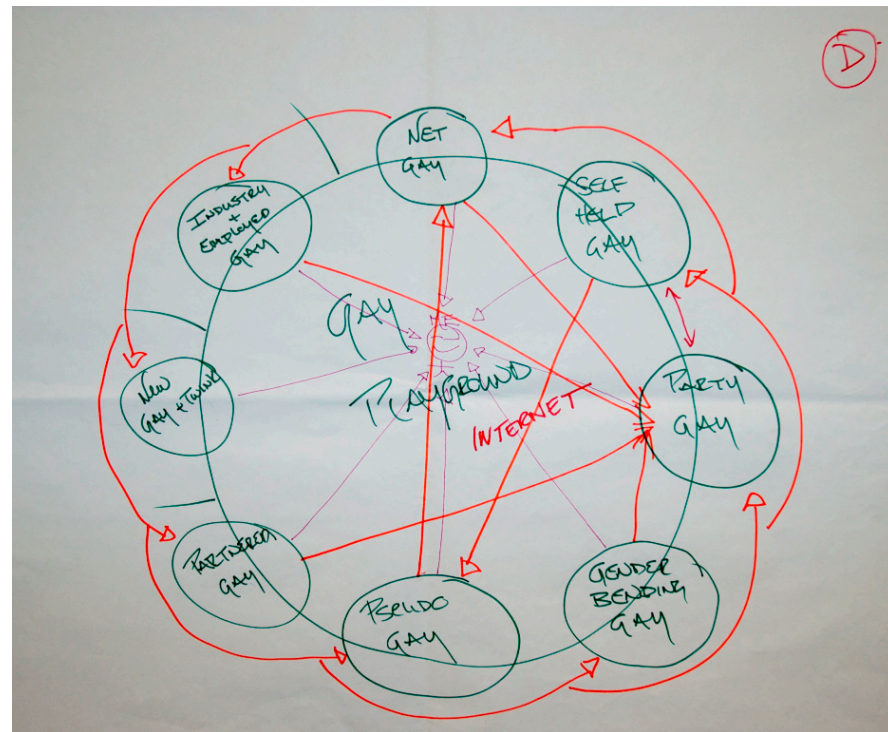 D
NET
GAY
SELF
HELD
GAY
INDUSTRY
+
EMPLOYED
GAY
GAY
PLAYGROUND
INTERNET
PARTY
GAY
NEW
GAY + TWINK
PARTNERED
GAY
PSEUDO
GAY
GENDER
BENDING
GAY